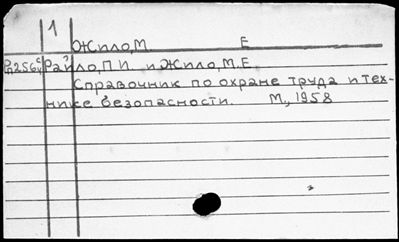 1
Жило, М Е
Райло, П И. и Жило, М. Е.
Справочник по охране труда и тех-
нике безопасности. М., 1958